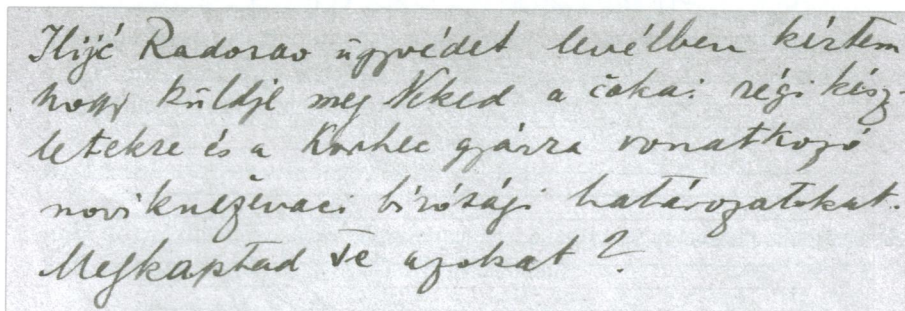 Ilijć Radosav ügyvédet levélben kértem
hogy küldje meg Neked a čokai régi kész-
letekre és a Korhec gyárra vonatkozó
noviknezevaci bírósági határozatokat.
Megkaptad Te azokat?